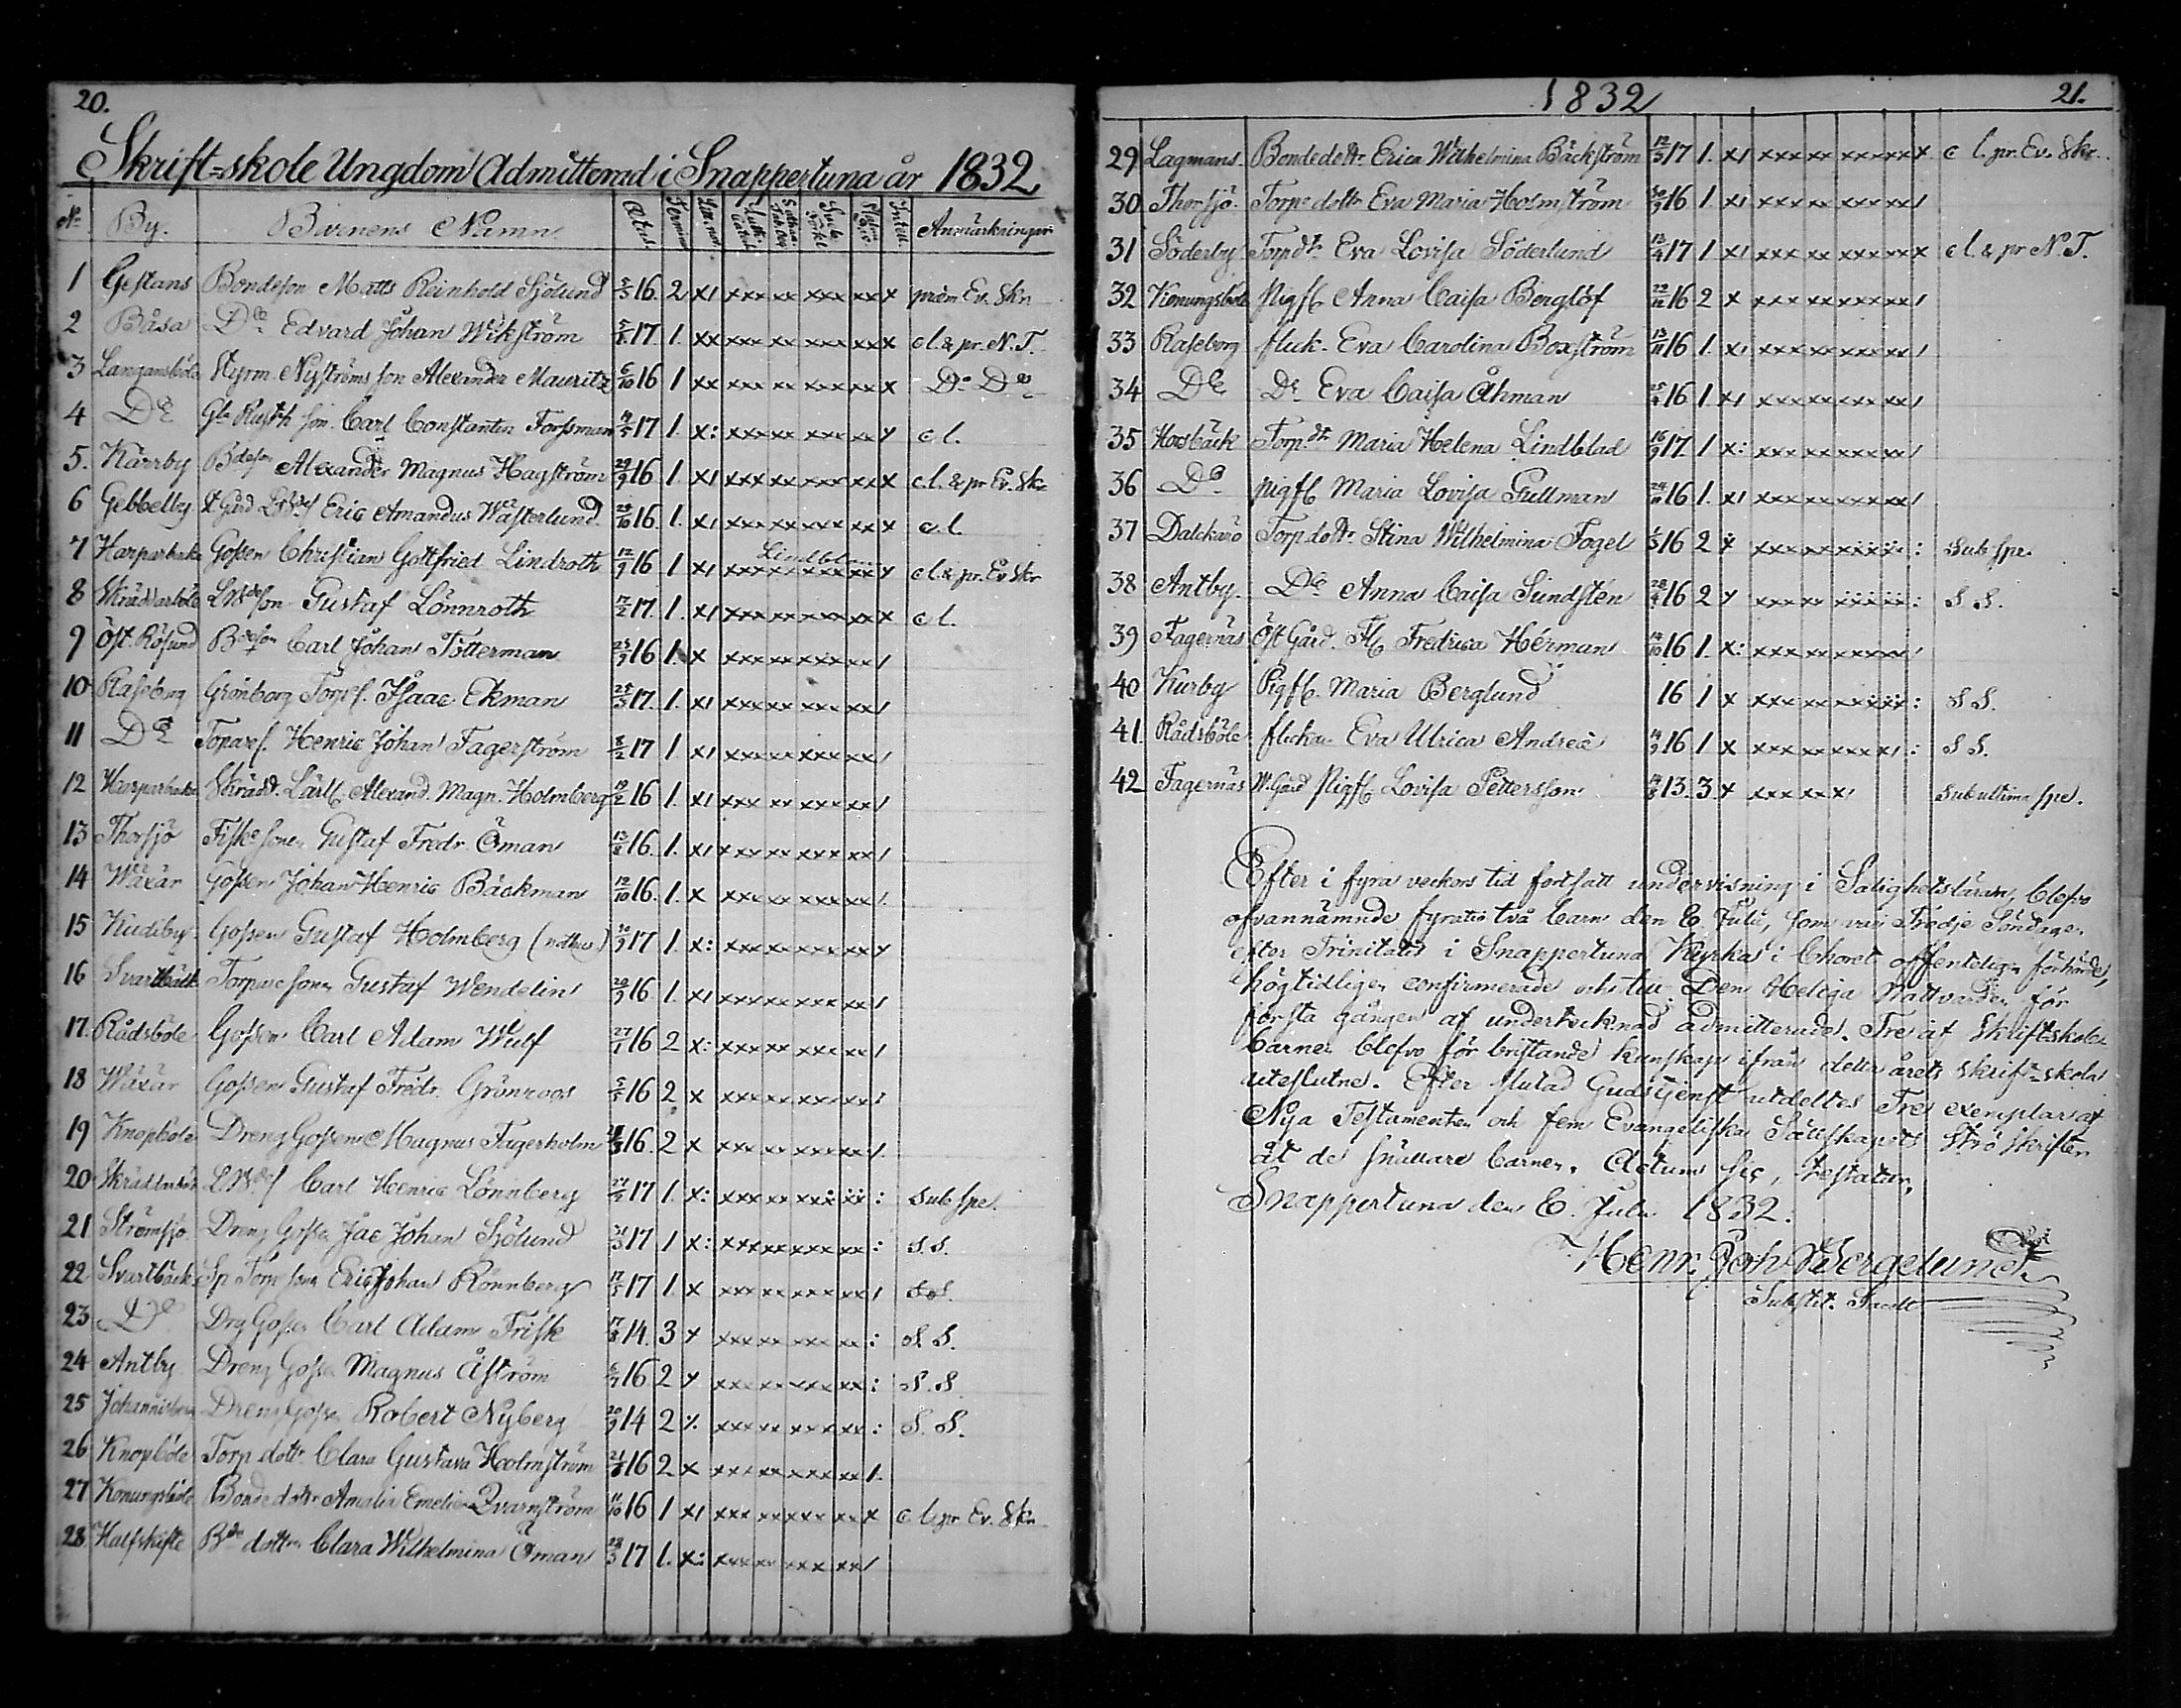 20.
Skrift=skole Ungdom Admitterad i Snappertuna år 1832
No By. Barnens Namn Ætas. Termin Anmärkningar
1 Gestans Bondeson Matts Reinhold Sjölund 5/3 16. 2 x/ xxx xx xxx xx x præm Ev. Skr
2 Båsa Do Edvard Johan Wikström 17. 1. xx xxx xx xxx xx x c l. & pr. N. T.
3 Langansböle Styrm. Nyströms son Alexander Mauritz 6/10 16 1 xx xxx xx xxx xx x Do Do
4 Do Carl Constantin Forssman 17 1. x: xxx xx xxx xx x c l.
5. Kärrby Bdeson Alexander Magnus Hagström 29/9 16 1. x/ xxx xx xxx xx x c. l. & pr Ev. Skr
6 Gebbelby Eric Amandus Wästerlund 16. 1. x/ xxx xx xxx xx x c. l.
Lindblom
7 Harparbacka Gossen Christian Gottfried Lindroth 12/9 16 1 x/ xxx xx xxx xx x c l. & pr. Ev Skr
8 Skräddarböle Gustaf Lönnroth 17/2 17. 1. x/ xxx xx xxx xx x c l.
9 Öst. Rösund Bdeson Carl Johan Totterman 25/9 16 1. x xxx xx xxx xx /
10 Raseborg Grönborg Torps. Isaac Ekman 25/3 17. 1. x/ xxx xx xxx xx /
11 Do Torpares. Henric Johan Fagerström 8/2 17 1. x/ xxx xx xxx xx /
12 Harparbacka Skrädd. Lärl. Alexand. Magn. Holmberg 16 1. x/ xxx xx xxx xx /
13 Thorsjö Fiskesonen Gustaf Fredr. Öman 16. 1. x/ xxx xx xxx xx /
14 Wäxär Gossen Johan Henric Bäckman 12/10 16. 1. x xxx xx xxx xx /
15 Kudeby Gossen Gustaf Holmberg (nothus) 17 1. x: xxx xx xxx xx x
16 Svartbäck Torparesonen Gustaf Wendelin 20/9 16 1. x/ xxx xx xxx xx /
17. Rådsböle Gossen Carl Adam Wulf 27/1 16 2 x: xxx xx xxx xx /
18 Wäxär Gossen Gustaf Fredr. Grönroos 16 2 x xxx xx xxx xx /
19 Knopböle Dreng Gossen Magnus Fagerholm 16. 2 x xxx xx xxx xx /
20 Carl Henric Lönnberg 17 1. x: sub spe.
21 Strömsjö Dreng Gossen Jac Johan Sjölund 31/3 17 1 x: xxx xx xxx xx : S. S.
22 Svartbäck Eric Johan Rönnberg 17/5 17 1. x xxx xx xxx xx / S. S.
23 Do Drg Gossen Carl Adam Frisk 17/8 14. 3 x xxx xx xxx xx : S. S.
24 Antby Dreng Gossen Magnus Åström 6/7 16 2 x xxx xx xxx xx : S. S.
25 Johannisberg Dreng Gossen Robert Nyberg 20/9 14 2 xxx xx xxx xx : S. S.
26 Knopböle Torp dottr Clara Gustava Holmström 16 2 x xxx xx xxx xx /.
27 Konungsböle Bondedottr Amalia Emelie Qvarnström 11/10 16 1 x/ xxx xx xxx xx x c l. pr Ev. Skr.
28 Halfskifte Bde dottr Clara Wilhelmina Öman 28/3 17 1. x: xxx xx xxx xx /
1832 21.
29 Lagmans Bondedottr Erica Wilhelmina Bäckström 12/3 17 1. x/ xxx xx xxx xx x c l. pr. Ev. Skr.
30 Thorsjö Torpedottr Eva Maria Holmström 30/9 16 1. x/ xxx xx xxx xx /
31 Söderby Torp dr. Eva Lovisa Söderlund 13/4 17 1 x/ xxx xx xxx xx x c l. & pr N. T.
32 Konungsböle Pigfl. Anna Caisa Berglöf 16 2 x xxx xx xxx xx /
33 Raseborg flick. Eva Carolina Boxström 13/11 16 1. x/ xxx xx xxx xx /
34 Do Do Eva Caisa Åhman 16 1. x/ xxx xx xxx xx /
35 Horsbäck Torp. dtr Maria Helena Lindblad 16/9 17 1 x: xxx xx xxx xx /
36 Do Pigfl. Maria Lovisa Gullman 16 1. x/ xxx xx xxx xx /
37 Dalckarö Torp. dottr. Stina Wilhelmina Fogel 16 2 x : sub spe.
38 Antby. Do Anna Caisa Sundstén 16 2 x : S S.
39 Fagernäs Öst Gård. Fl. Fredrica Hérman 14/10 16 1. x: xxx xx xxx xx /
40 Kurby Pigfl. Maria Berglund 16 1 x : S S.
41 Rådsböle flickan Eva Ulrica Andreè 16 1 x : S S.
42 Fagernäs W. Gård Pigfl. Lovisa Pettersson 13. 3 x sub ultima spe.
Efter i fyra veckors tid fortsatt undervisning i Salighetsläran, blefvo
ofvannämnde fyratio två barn den 8. Julii, som var Tredje Söndagen
efter Trinitatis i Snappertuna Kyrka i Choret offentligen förhörde,
högtidligen confirmerade och till Den Heliga Nattvarden för
första gången af undertecknad admitterade. Tre af Skriftskole
barnen blefvo för bristande kunskap ifrån detta årets skrift-skola
uteslutne. Efter slutad Gudstjenst utdeltes Tre exemplar af
Nya Testamenten och fem Evangeliska SällskapetsStröskrifter
åt de snällare barnen. Actum sic, testatur,
Snappertuna den 8. Julii 1832.
Henr. Joh. Bergelund
Substit. Sacell.